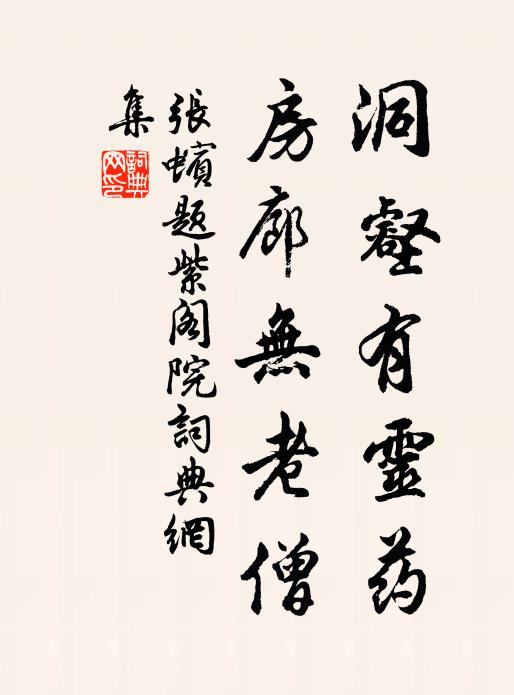 洞壑有靈药
房廊無老僧
張蠙题紫阁院詞典網
集
詞典网印